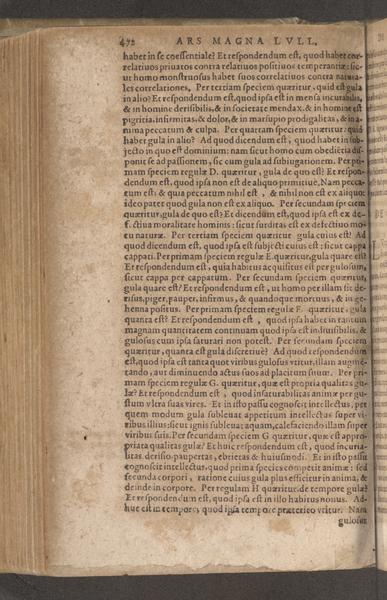 472 ARS MAGNA LVLL.
habet in se coessentiale? Et respondendum est, quod habet cor-
relatiuos priuatos contra relatiuos positiuos temperantiæ: sic-
ut homo monstruosus habet suos correlatiuos contra natura-
les correlationes. Per tertiam speciem quæritur, quid est gula
in alio? Et respondendum est, quod ipsa est in mensa incurabilis,
& in homine derisibilis, & in societate mendax, & in homine est
pigritia, infirmitas, & dolor, & in marsupio prodigalitas, & in a-
nima peccatum & culpa. Per quartam speciem quæritur: quid
habet gula in alio? Ad quod dicendum est, quod habet in sub-
jecto in quo est dominium: nam sicut homo cum obedientia dis-
ponit se ad passionem, sic cum gula ad subiugationem. Per pri-
mam speciem regulæ D. quæritur, gula de quo est? Et respon-
dendum est, quod ipsa non est de aliquo primitiue. Nam pecca-
tum est: & quia peccatum nihil est, & nihil non est ex aliquo:
ideo patet quod gula non est ex aliquo. Per secundam speciem
quæritur, gula de quo est? Et dicendum est, quod ipsa est ex de-
fectiua moralitate hominis: sicut surditas est ex defectiuo mo-
tu naturæ. Per tertiam speciem quæritur gula cuius est? Ad
quod dicendum est, quod ipsa est subjecti cuius est: sicut cappa
cappati. Per primam speciem regulæ E. quæritur, gula quare est?
Et respondendum est, quia habitus acquisitus est per gulosum,
sicut cappa per cappatum. Per secundam speciem quæritur,
gula quare est? Et respondendum est, ut homo per illam sit de-
risus, piger, pauper, infirmus, & quandoque mortuus, & in ge-
henna positus. Per primam speciem regulæ F. quæritur: gula
quanta est? Et respondendum est, quod ipsa habet in tantum
magnam quantitatem continuam quod ipsa est indiuisibilis, &
gulosus cum ipsa saturari non potest. Per secundam speciem
quæritur, quanta est gula discretiuè? Ad quod respondendum
est, quod ipsa est tanta quot viribus gulosus vtitur, illam augmẽ-
tando, aut diminuendo actus suos ad placitum suum. Per pri-
mam speciem regulæ G. quæritur, quæ est propria qualitas gu-
læ? Et respondendum est, quod insaturabilitas animæ per gu-
stum vltra suas vires. Et in isto passu cognoscit intellectus, per
quem modum gula subleuat appetitum intellectus super vi-
ribus illius: sicut ignis subleuat aquam, calefaciendo illam super
viribus suis. Per secundam speciem G quæritur, quæ est appro-
priata qualitas gulæ? Et huic respondendum est, quod incuria-
litas, derisio, paupertas, ebrietas & huiusmodi. Et in isto passu
cognoscit intellectus, quod prima species competit animæ: sed
secunda corpori, ratione cuius gula plus efficitur in anima, &
deinde in corpore. Per regulam H quæritur, de tempore gulæ?
Et respondendum est, quod ipsa est in illo habitus nouus. Ad-
huc est in tempore, quod ipsa tempore præterito vtitur. Nam
gulosus